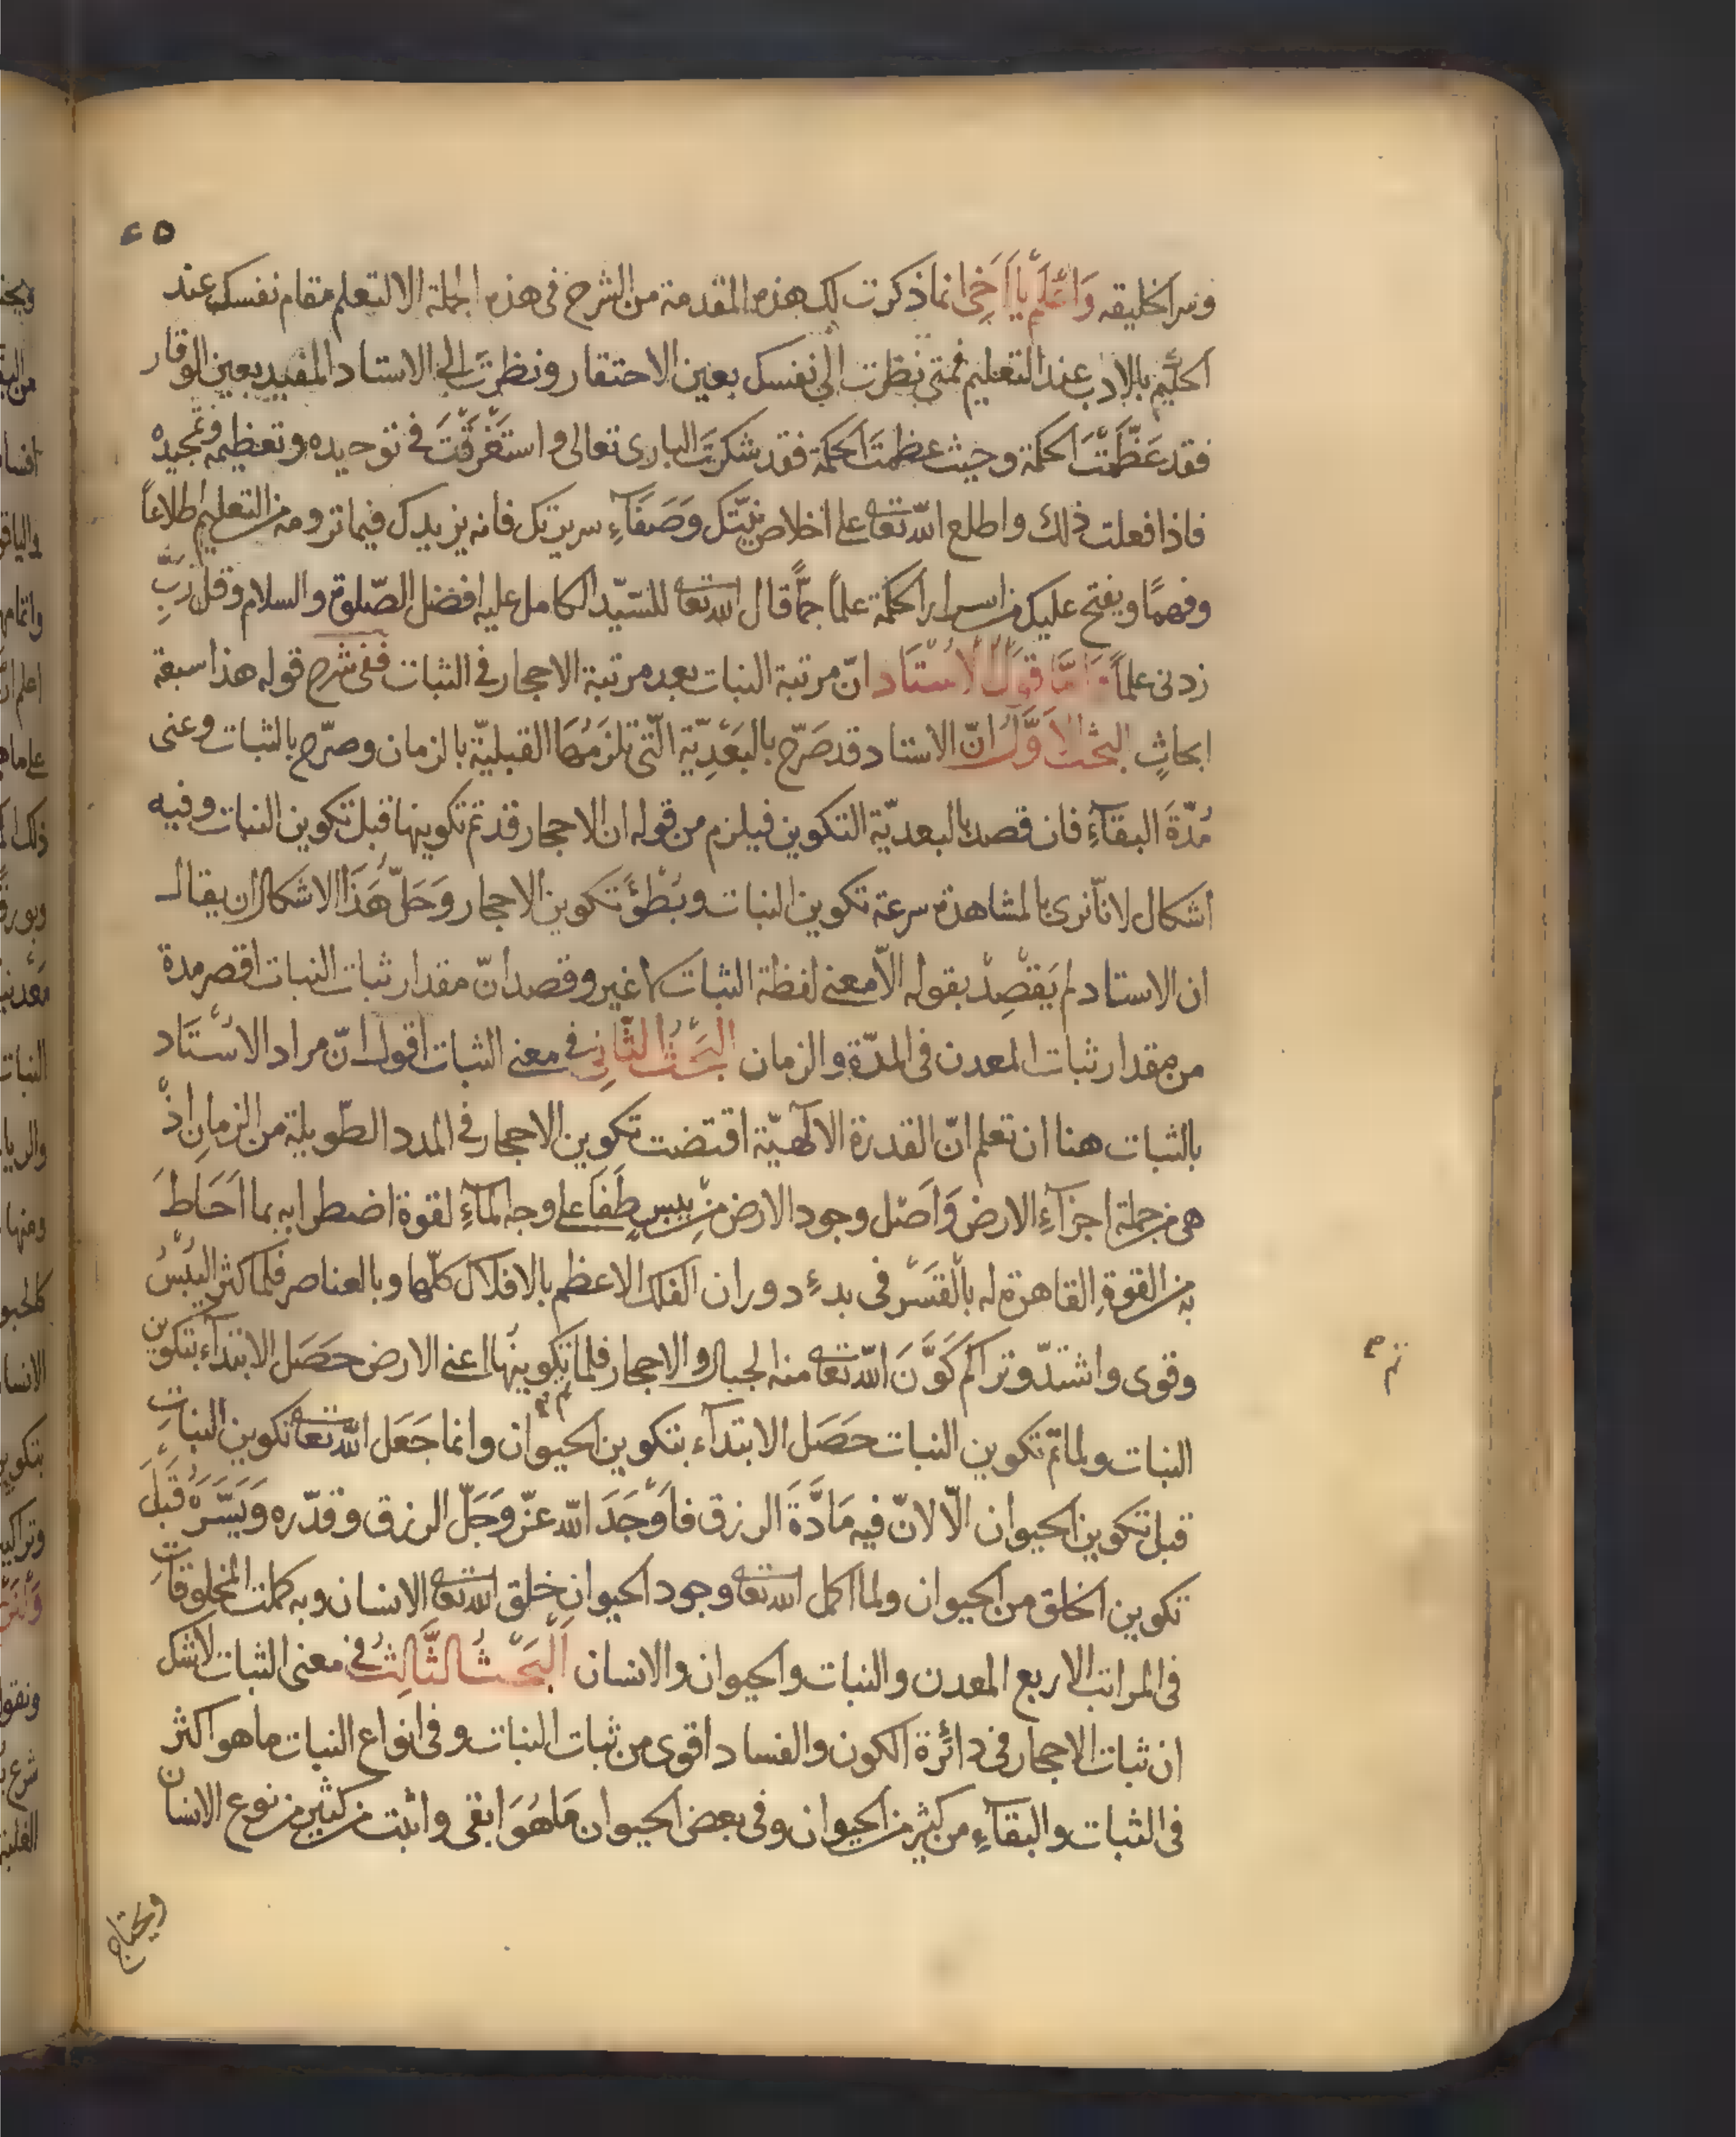 ٤٥
وسر الخليقه وَاعْلَمْ يَا اَخِى انما ذكرت لك هذه المقدمة من الشرح فى هذه الجملة الا لتعلم مقام نفسك عند
الحكيم بالادب عند التعليم فمتى نظرت الى نفسك بعين الاحتقار ونظرتَ الى الاستاد المفيد بعين الوقار
فقد عَظَّمْتَ الحكمة وحيث عظمتَ الحكمة فقد شكرتَ البارى تعالى واستَغْرَقْتَ فى توحيده وتعظيمه وتمجيده
فاذا فعلت ذلك واطلع الله تعا على اخلاص نيّتك وَصَفَآءِ سريرتك فانه يزيدك فيما ترومه من التعليم اطلاعاً
وفهمًا ويفتح عليك من اسرار الحكمة علماً جمّاً قال الله تعا للسّيد الكامل عليه افضل الصّلوة والسلام وقل رَبِّ
زدنى علماً وَامَّا قَوْلُ الْاُسْتَاد انّ مرتبة النبات بعد مرتبة الاحجار فى الثبات ففى شرح قوله هذا سبعة
ابحاثٍ البحْث الاَوَّلُ انّ الاستاد قد صَرّح بالبَعْدِيّة الّتى تلزَمُهَا القبليّة بالزمان وصرّح بالثبات وعنى
مُدّةَ البقآءِ فان قصد بالبعديّة التكوين فيلزم من قوله ان الاحجار قد تم تكوينها قبل تكوين النبات وفيه
اشكال لانّا نرى بالمشاهدة سرعة تكوين النبات وبُطْؤَ تكوين الاحجار وَحَلّ هَذَا الاشكال ان يقال
ان الاستاد لم يَقْصِدْ بقوله الّا معنى لفظة الثبات لا غير وقصد انّ مقدار ثبات النبات اقصر مدة
من مقدار ثبات المعدن فى المدّة والزمان البَحْثُ الثَّانِى فى معنى الثبات اقول انّ مراد الاُسْتَاد
بالثبات هنا ان تعلم انّ القدرة الالٓهيّة اقتضت تكوين الاحجار فى المدد الطّويلة من الزمانِ اذْ
هى من جملة اجزآءِ الارض وَاَصْل وجود الارض مِنْ يبسٍ طَفَا على وجه المآءِ لقوة اضطرابه بما اَحَاطَ
به من القوةِ القاهرة له بالْقَسْر فى بدءِ دوران الفلك الاعظم بالافلاك كلّها وبالعناصر فلما كثر اليُبْسُ
وقوى واشتدّ وتراكم كَوَّنَ الله تعا منه الجبال والاحجار فلما تكوينُها اعنى الارض حصَل الابتدآء بتكوين
تم
النبات ولما تمّ تكوين النبات حصَل الابتدآء بتكوين الحيوان وانما جَعَل الله تعا تكوين النباتِ
قبل تكوين الحيوان الّا لانّ فيه مَادَّةَ الرزق فاَوْجَدَ الله عزّ وَجَلّ الرزق وقدّره وَيَسَّرَهُ قَبْلَ
تكوين الخلق من الحيوان ولما اكمل الله تعا وجود الحيوان خلق الله تعا الانسان وبه كملت المخلوقاتِ
فى المراتب الاربع المعدن والنبات والحيوان والانسان اَلْبَحْثُ الثَّالِثُ فى معنى الثبات لا شك
ان ثبات الاحجار فى دائرة الكون والفساد اقوى من ثبات النبات وفى انواع النبات ما هو اكثر
فى الثبات والبقآءِ من كثير من الحيوان وفى بعض الحيوان مَا هُوَ ابقى واثبت من كثير من نوع الانسان
ويحتاج